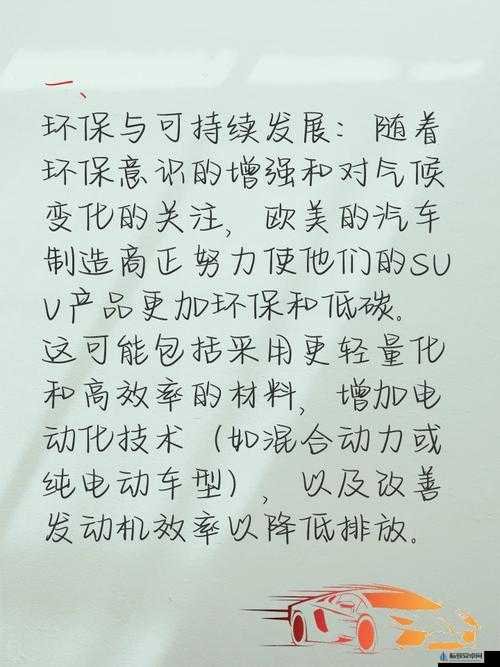 一、
环保与可持续发展：随着
环保意识的增强和对气候
变化的关注，欧美的汽车
制造商正努力使他们的SU
V产品更加环保和低碳。
这可能包括采用更轻量化
和高效率的材料，增加电
动化技术（如混合动力或
纯电动车型），以及改善
发动机效率以降低排放。